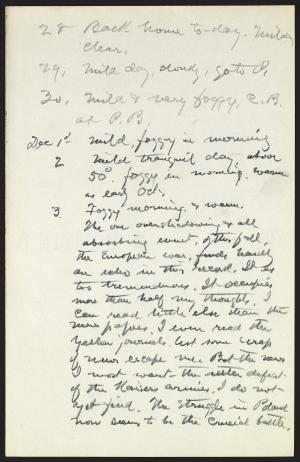 28 Back home to-day. Mild &
clear.
29, Mild day, cloudy, go to P.
30, Mild & very foggy, C.B.
at P.B.
Dec 1st Mild, foggy in morning
2 Mild tranquil day, above
50°. foggy in morning. warm
as early Oct.
3. Foggy morning, & warm.
The one overshadowing & all
absorbing event of this fall,
the European war, finds hardly
an echo in this record. It is
too tremendous. It occupies
more than half my thoughts. I
can read little else than the
news papers. I even read the
yellow journals, lest some scrap
of news escape me. But the news
I most want - the utter defeat
of the Kaiser armies, I do not
yet find. The struggle in Poland
now seems to be the crucial battle